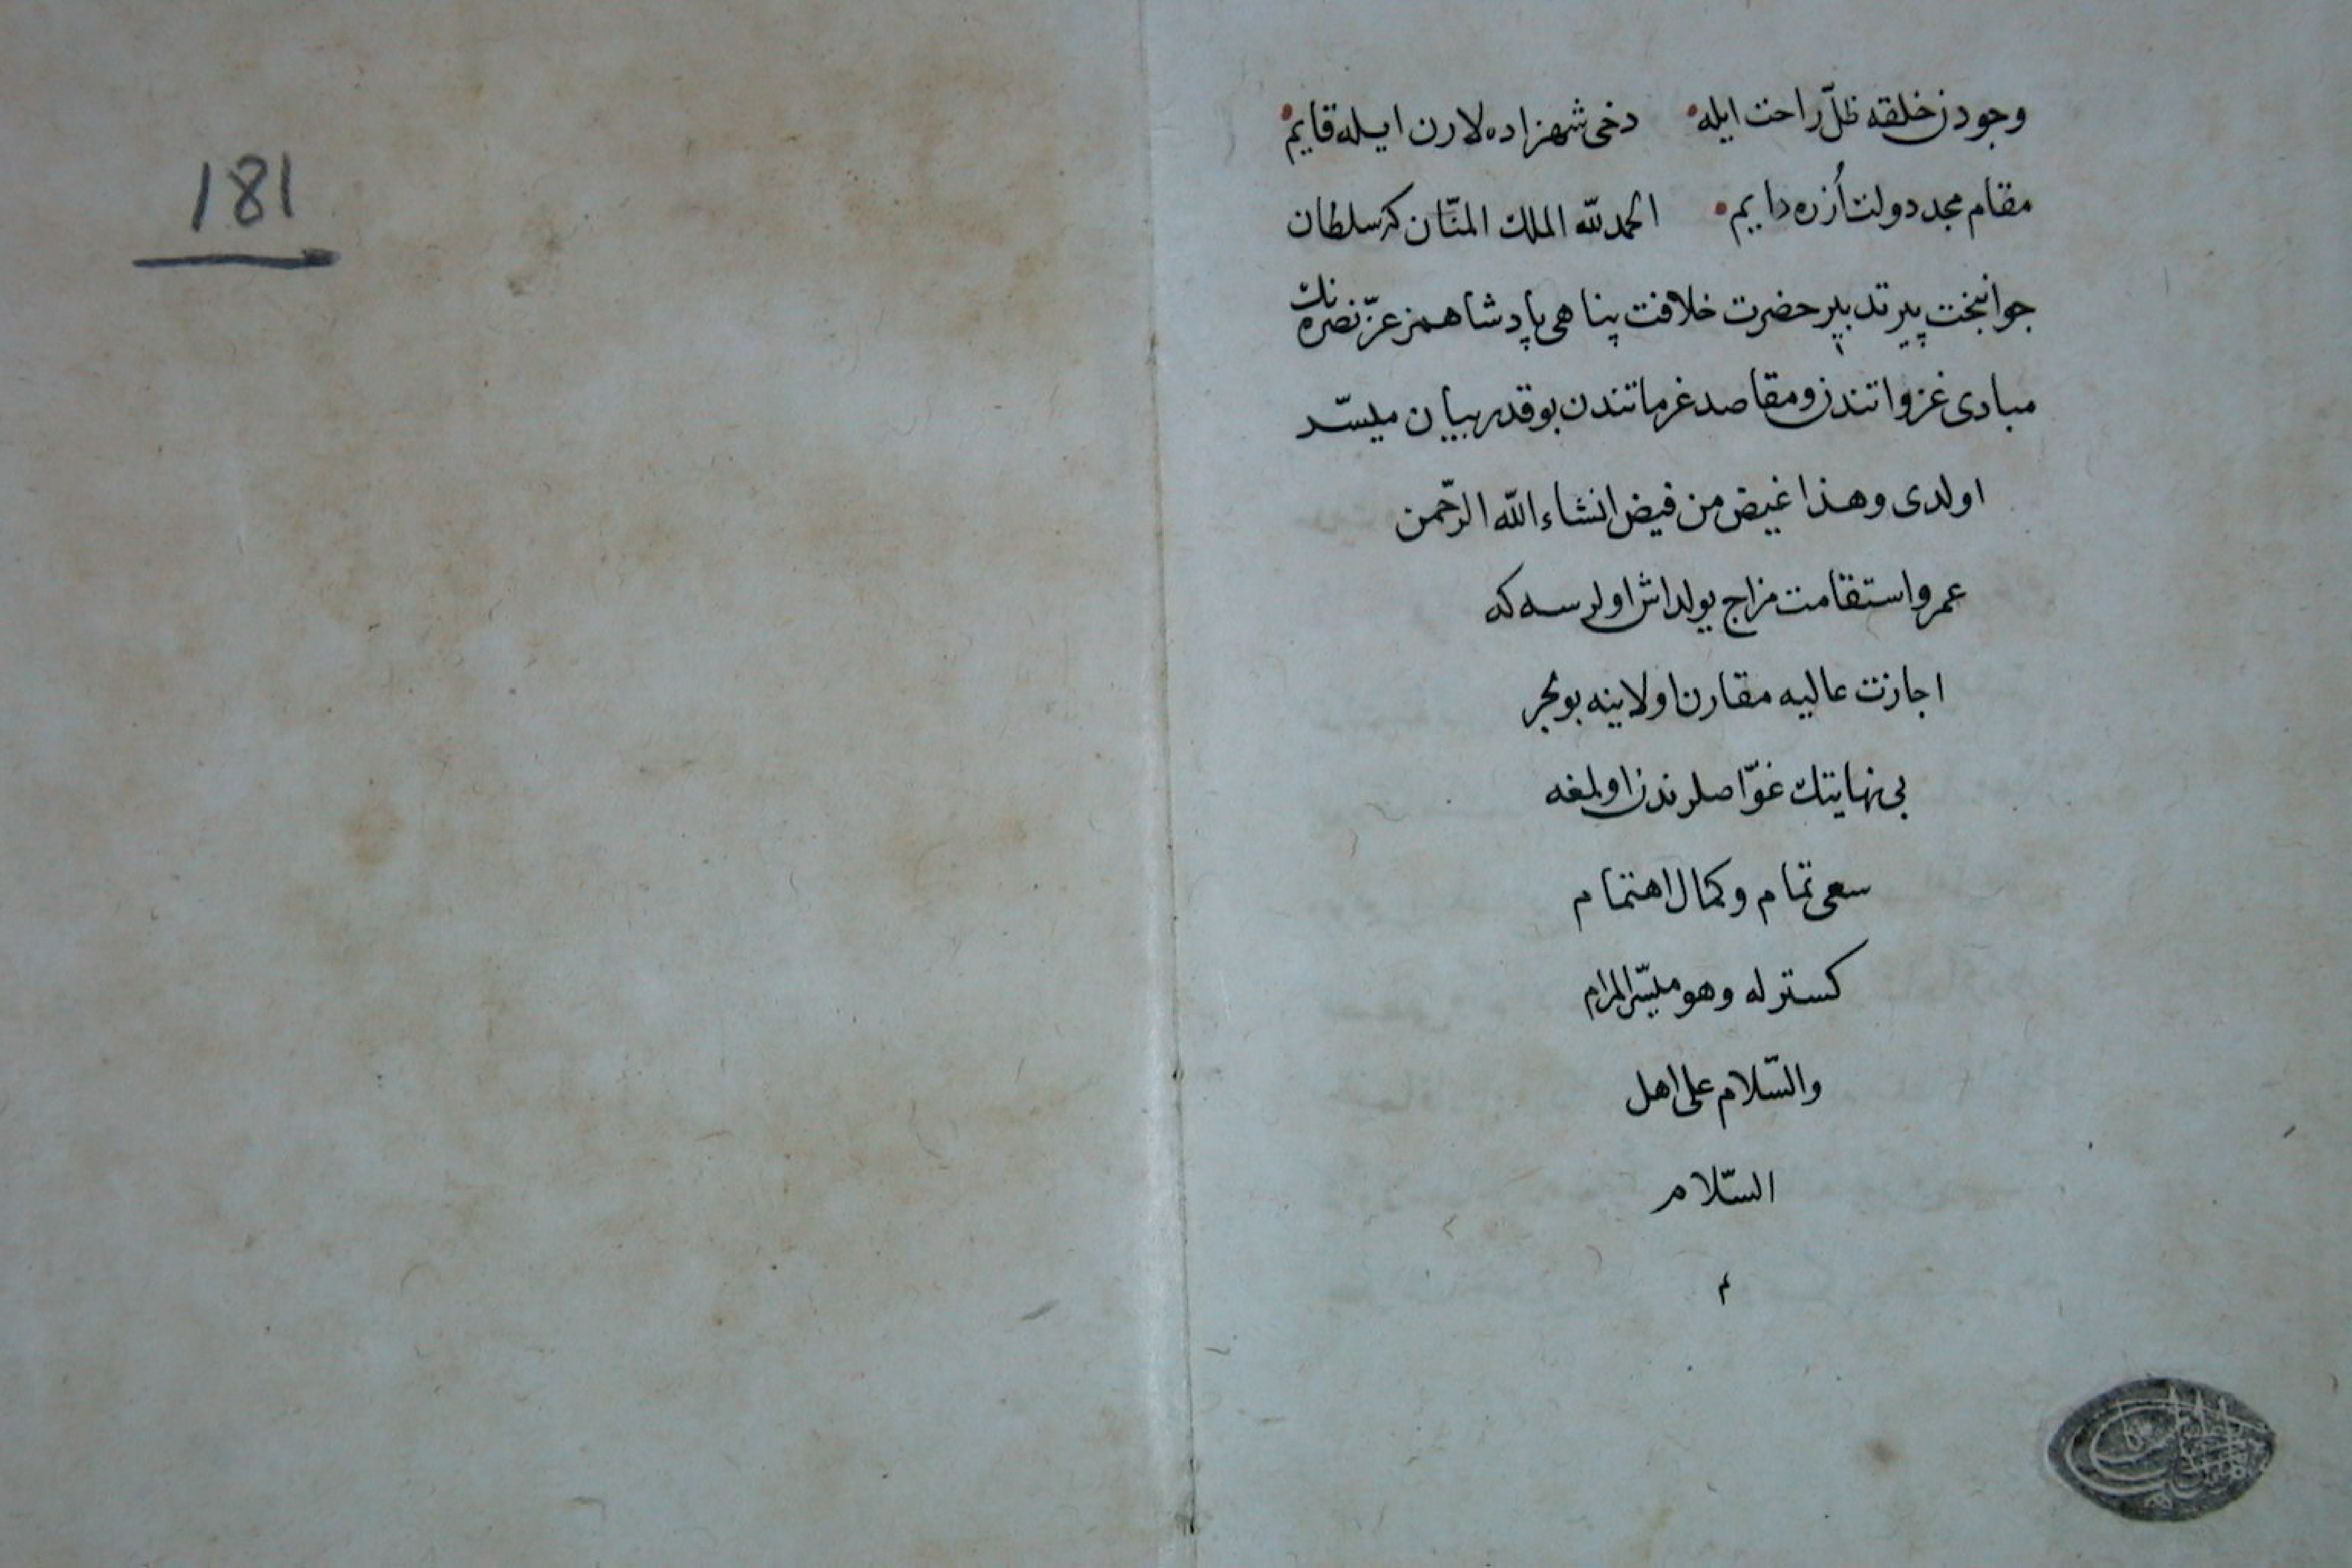 وجودن خلقه ظلّ راحت ايله دخى شهزاده لارن ايله قايم
مقام مجد دولت اُزره دايم الحمد لله الملك المنّان كه سلطان
جوانبخت پير تدبير حضرت خلافت پناهى پادشاهمز عزّ نصره نك
مبادى غزواتندن ومقاصد غرماتندن بو قدر بيان ميسّر
اولدى وهذا غيض من فيض انشاء الله الرّحمن
عمر واستقامت مزاج يولداش اولرسه كه
اجازت عاليه مقارن اولاينه بو بحر
بى نهايتك غوّاصلرندن اولمغه
سعى تمام وكمال اهتمام
كسترله وهو ميسّر المرام
والسّلام على اهل
السّلام
م
181